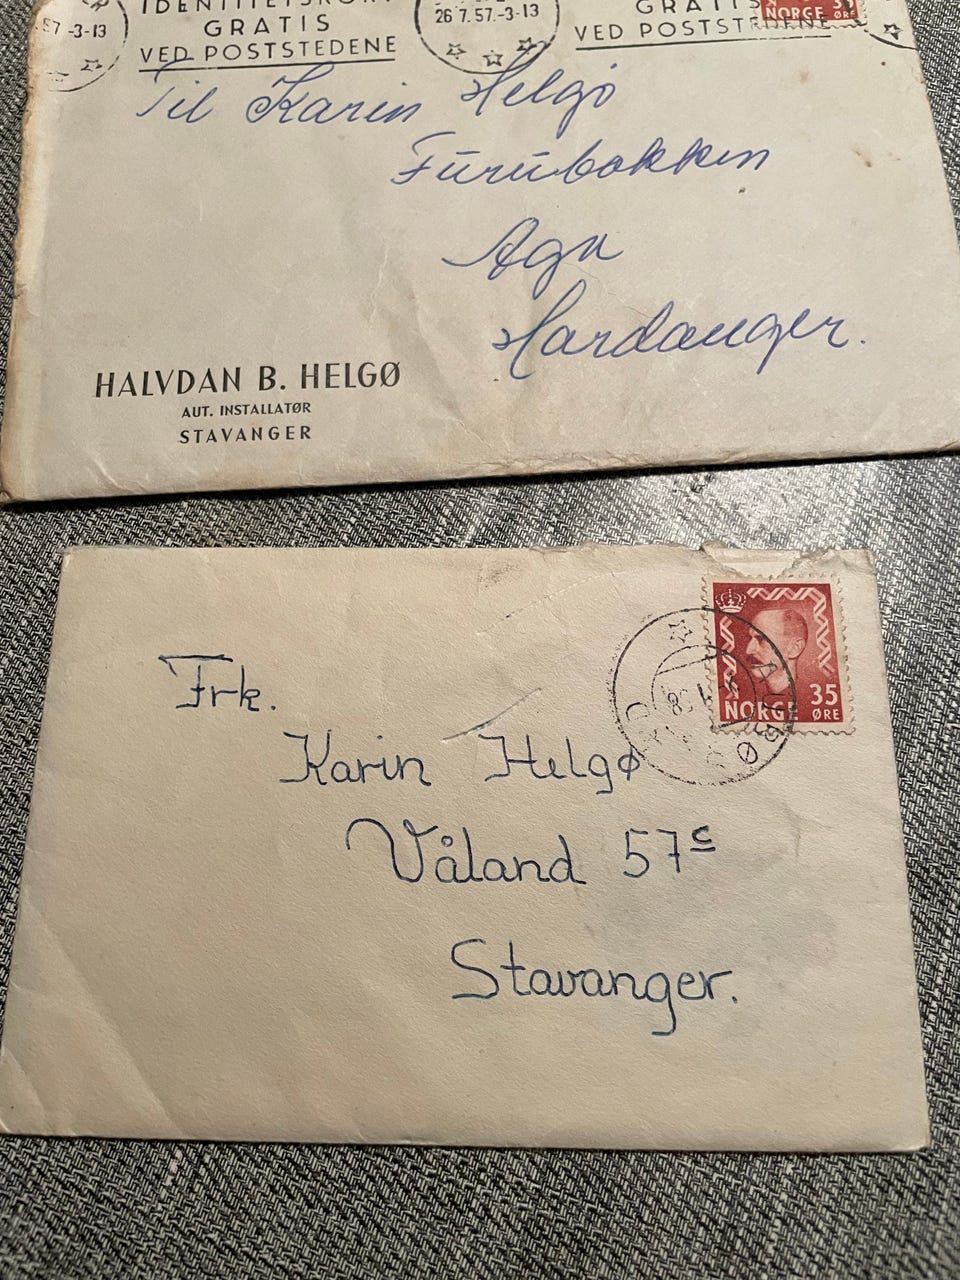 57 -3-13
GRATIS
VED POSTSTEDENE
26 7. 57.-3-13
GRATIS
VED POSTSTEDENE
NORGE ØRE
Til Karin Helgö
Furubakken
Aga
Hardanger.
HALVDAN B. HELGØ
AUT. INSTALLATØR
STAVANGER
35
NORGE ØRE
Frk.
Karin Helgø
Våland 57c
Stavanger.